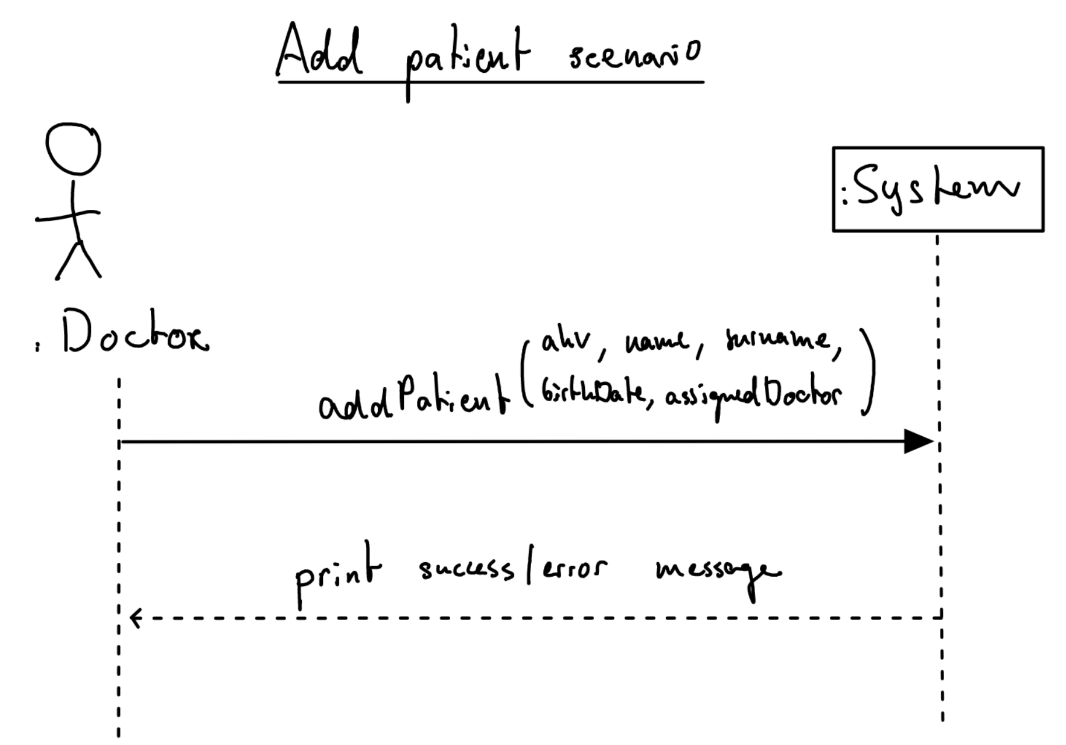 Add patient scenario
:System
: Doctor
addPatient(ahv, name, surname,
birthDate, assignedDoctor)
print success/error message